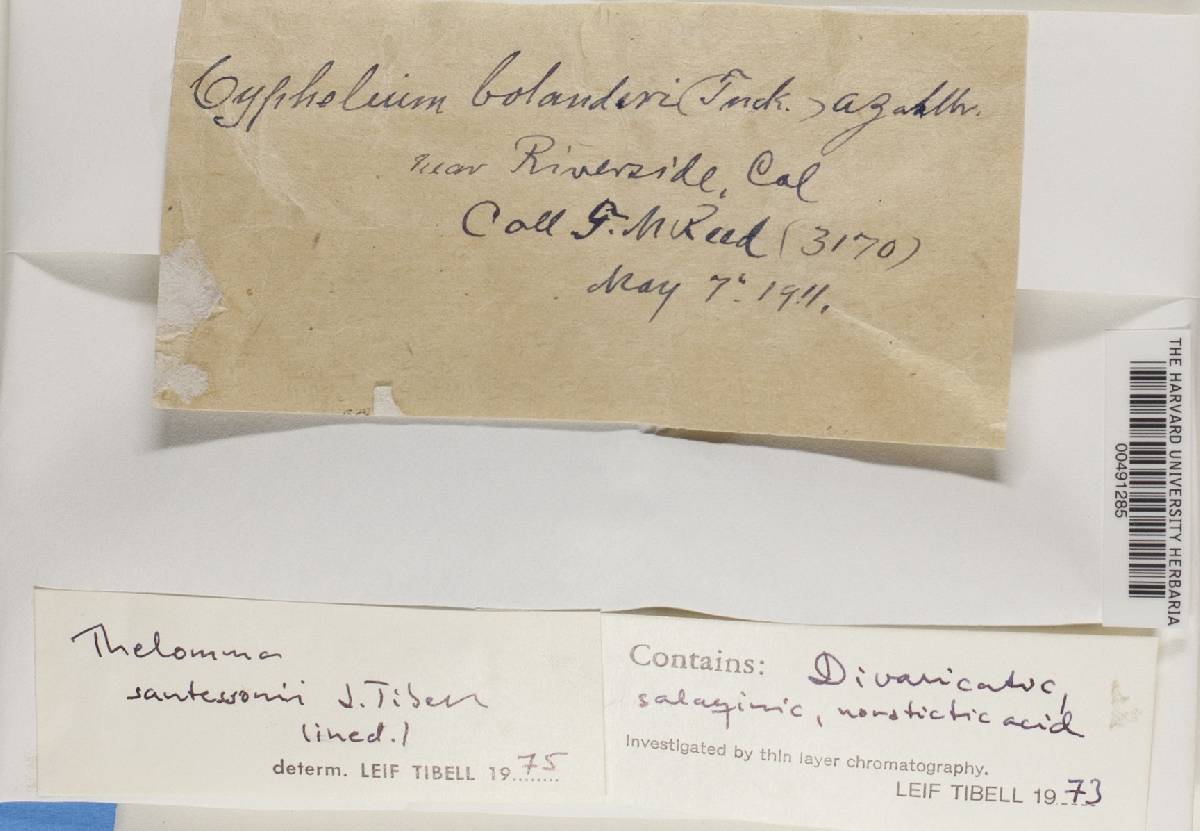 Cypholium bolanderi (Tuck.) azahlbr.
near Riverside, Cal
Coll F. M Reed (3170)
May 7th. 1911.
THE HARVARD UNIVERSITY HERBARIA
00491285
Thelomma
santessonii L. Tibell
(ined.)
determ. LEIF TIBELL 1975
Contains: Divaricatic,
salazinic, norstictic acid
Investigated by thin layer chromatography.
LEIF TIBELL 1973